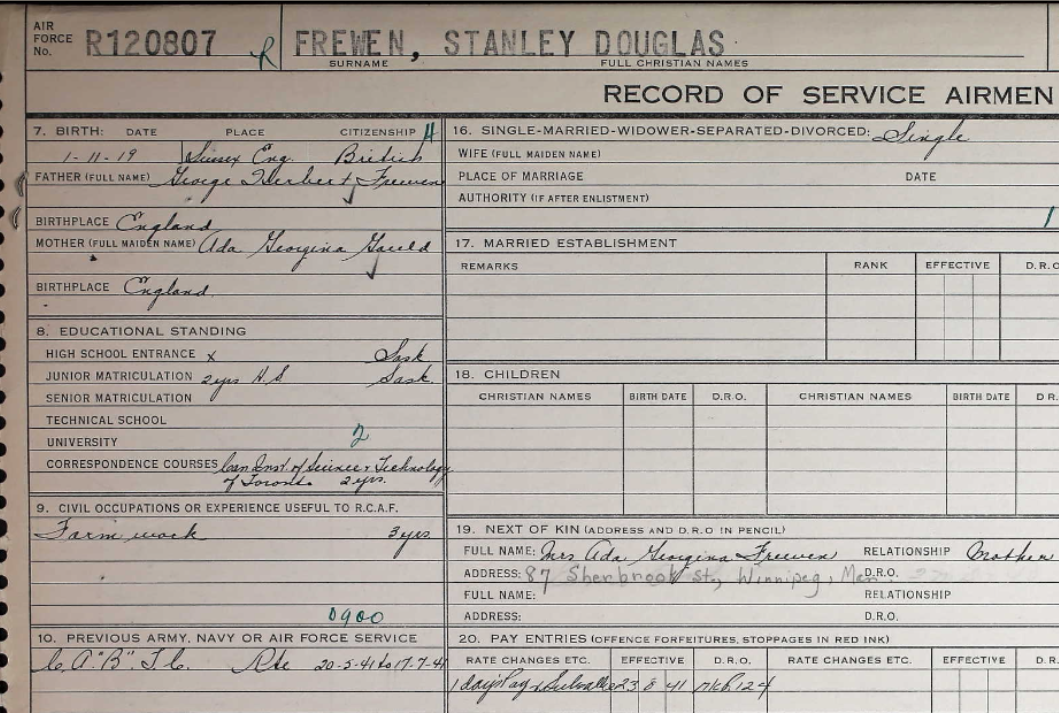 AIR FORCE No. R120807 R FREWEN, STANLEY DOUGLAS
SURNAME FULL CHRISTIAN NAMES
RECORD OF SERVICE AIRMEN
7. BIRTH: DATE PLACE CITIZENSHIP 4
1-11-19 Sussex Eng. British
FATHER (FULL NAME) George Herbert Frewen
BIRTHPLACE England
MOTHER (FULL MAIDEN NAME) Ada Georgina Gauld
BIRTHPLACE England
8. EDUCATIONAL STANDING
HIGH SCHOOL ENTRANCE x Sask
JUNIOR MATRICULATION 2 yrs H.S Sask.
SENIOR MATRICULATION
TECHNICAL SCHOOL
UNIVERSITY 2
CORRESPONDENCE COURSES Can Inst. of Science & Technology
of Toronto 2 yrs.
9. CIVIL OCCUPATIONS OR EXPERIENCE USEFUL TO R.C.A.F.
Farm work 3 yrs
0900
10. PREVIOUS ARMY, NAVY OR AIR FORCE SERVICE
C.A."B".T.C. Pte 20-5-41 to 17-7-41
16. SINGLE-MARRIED-WIDOWER-SEPARATED-DIVORCED: Single
WIFE (FULL MAIDEN NAME)
PLACE OF MARRIAGE DATE
AUTHORITY (IF AFTER ENLISTMENT)
1
17. MARRIED ESTABLISHMENT
REMARKS RANK EFFECTIVE D.R.O
18. CHILDREN
CHRISTIAN NAMES BIRTH DATE D.R.O. CHRISTIAN NAMES BIRTH DATE D R.
19. NEXT OF KIN (ADDRESS AND D.R.O IN PENCIL)
FULL NAME: Mrs Ada Georgina Frewen RELATIONSHIP Mother
ADDRESS: 87 Sherbrook st., Winnipeg, Man. D.R.O.
FULL NAME: RELATIONSHIP
ADDRESS: D.R.O.
20. PAY ENTRIES (OFFENCE FORFEITURES, STOPPAGES IN RED INK)
RATE CHANGES ETC. EFFECTIVE D.R.O. RATE CHANGES ETC. EFFECTIVE D.R.
1 day's Pay & 23 8 41 124